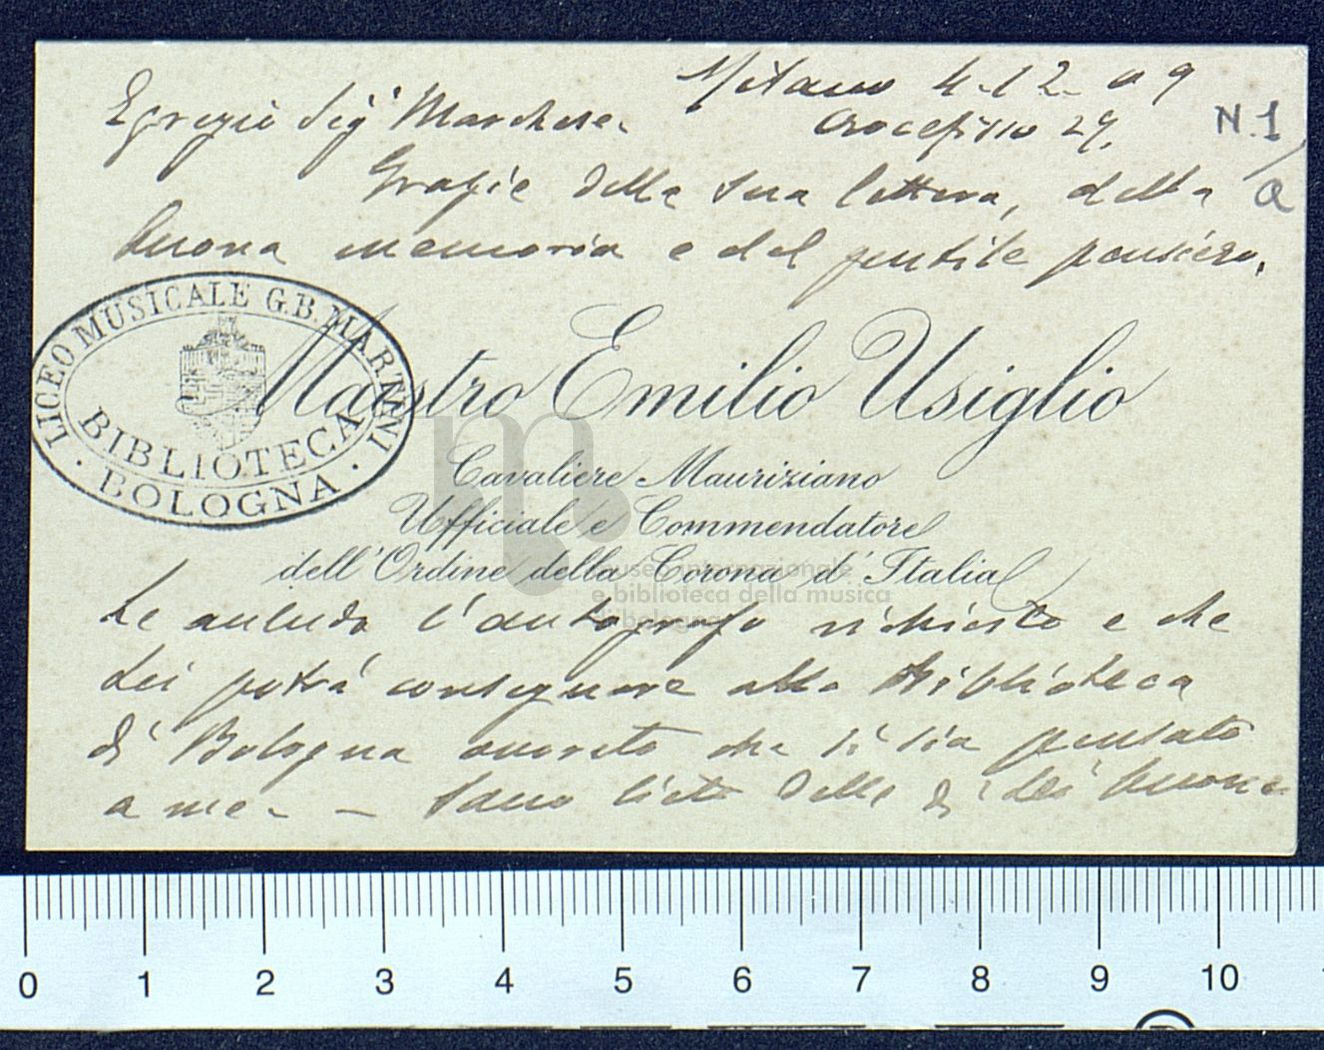 Milano 4-12-09
Crocefisso 27.
Egregio Sig. Marchese.
N. 1/a
Grazie della sua lettera, della
buona memoria e del gentile pensiero.
Maestro Emilio Usiglio
Cavaliere Mauriziano
Ufficiale e Commendatore
dell'Ordine della Corona d'Italia
LICEO MUSICALE G.B. MARTINI
BIBLIOTECA
· BOLOGNA ·
museo internazionale
e biblioteca della musica
di bologna
Le accludo l'autografo richiesto e che
Lei potrà consegnare alla Biblioteca
di Bologna onorato che si sia pensato
a me. — Sono lieto delle di Lei buone
0 1 2 3 4 5 6 7 8 9 10